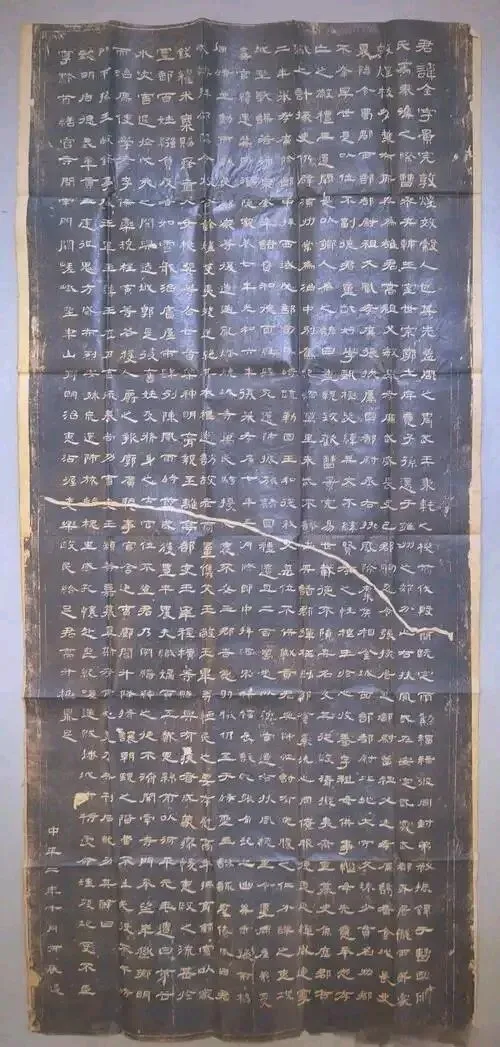 君諱全字景完敦煌效穀人也其先蓋周之胄武王秉乾之機翦伐殷商既定爾勳福祿攸同封弟叔振鐸于曹國因
氏焉秦漢之際曹參夾輔王室世宗廓土斥竟子孫遷于雍州之郊分止右扶風或在安定或處武都或居隴西或家
敦煌枝分葉布所在為雄君高祖父敏舉孝廉武威長史巴郡朐忍令張掖居延都尉曾祖父述孝廉謁者金城長史
夏陽令蜀郡西部都尉祖父鳳孝廉張掖屬國都尉丞右扶風隃麋侯相金城西部都尉北地太守父琫少貫名州郡
不幸早世是以位不副德君童齔好學甄極毖緯無文不綜賢孝之性根生於心收養季祖母供事繼母先意承志存
亡之敬禮無遺闕是以鄉人為之諺曰重親致歡曹景完易世載德不隕其名及其從政清擬夷齊直慕史魚歷郡右
職上計掾史仍辟涼州常為治中別駕紀綱萬里朱紫不謬出典諸郡彈枉糾邪貪暴洗心同僚服德遠近憚威建寧
二年舉孝廉除郎中拜西域戊部司馬時疏勒國王和德弒父篡位不供職貢君興師征討有吮膿之仁分醪之惠攻
城野戰謀若涌泉威牟諸賁和德面縛歸死還師振旅諸國禮遺且二百萬悉以簿官遷右扶風槐里令遭同產弟憂
棄官續遇禁冈潛隱家巷七年光和六年復舉孝廉七年三月除郎中拜酒泉祿福長訞賊張角起兵幽冀兗豫荊楊
同時並動而縣民郭家等復造逆亂燔燒城寺萬民騷擾人裹不安三郡告急羽檄仍至于時聖主諮諏群僚咸曰君
哉轉拜郃陽令收合餘燼芟夷殘迸絕其本根遂訪故老商量儁艾王敞王畢等恤民之要存慰高年撫育鰥寡以家
錢糴米粟賜癃盲大女桃婓等合七首藥神明膏親至離亭部吏王宰程橫等賦與有疾者咸蒙瘳悛惠政之流甚於
置郵百姓繈負反者如雲戢治廧屋市肆列陳風雨時節歲獲豐年農夫織婦百工戴恩縣前以河平元年遭白茅谷
水災害退於戌亥之間興造城郭是後舊姓及脩身之士官位不登君乃閔縉紳之徒不濟開南寺門承望華嶽鄉明
而治庶使學者李儒欒規程寅等各獲人爵之報廓廣聽事官舍廷曹廊閤升降揖讓朝覲之階費不出民役不干時
門下掾王敞錄事掾王畢主簿王歷戶曹掾秦尚功曹史王顓等嘉慕奚斯考甫之美乃共刊石紀功其辭曰
懿明后德義章貢王庭征鬼方威布烈安殊巟還師旅臨槐里感孔懷赴喪紀嗟逆賊燔城市特受命理殘圮芟不臣
寧黔首繕官寺開南門闕嵯峨望華山鄉明治惠沾渥吏樂政民給足君高升極鼎足
中平二年十月丙辰造